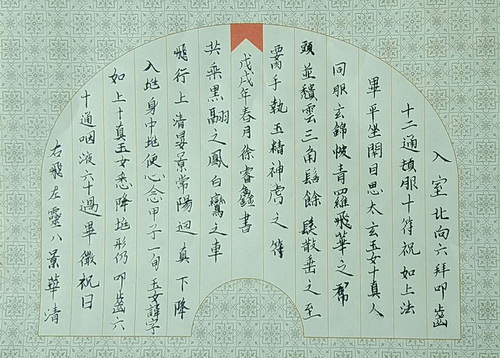 入室北向六拜叩齒
十二通頓服十符祝如上法
畢平坐閉目思太玄玉女十真人
同服玄錦帔青羅飛華之帬
頭並穨雲三角髻餘髮散垂之至
要手執玉精神虎之符
戊戌年春月徐睿鑫書
共乘黑翮之鳳白鸞之車
飛行上清晏景常陽迴真下降
入地身中地便心念甲子一旬玉女諱字
如上十真玉女悉降地形仍叩齒六
十通咽液六十過畢微祝曰
右飛左靈八景華清